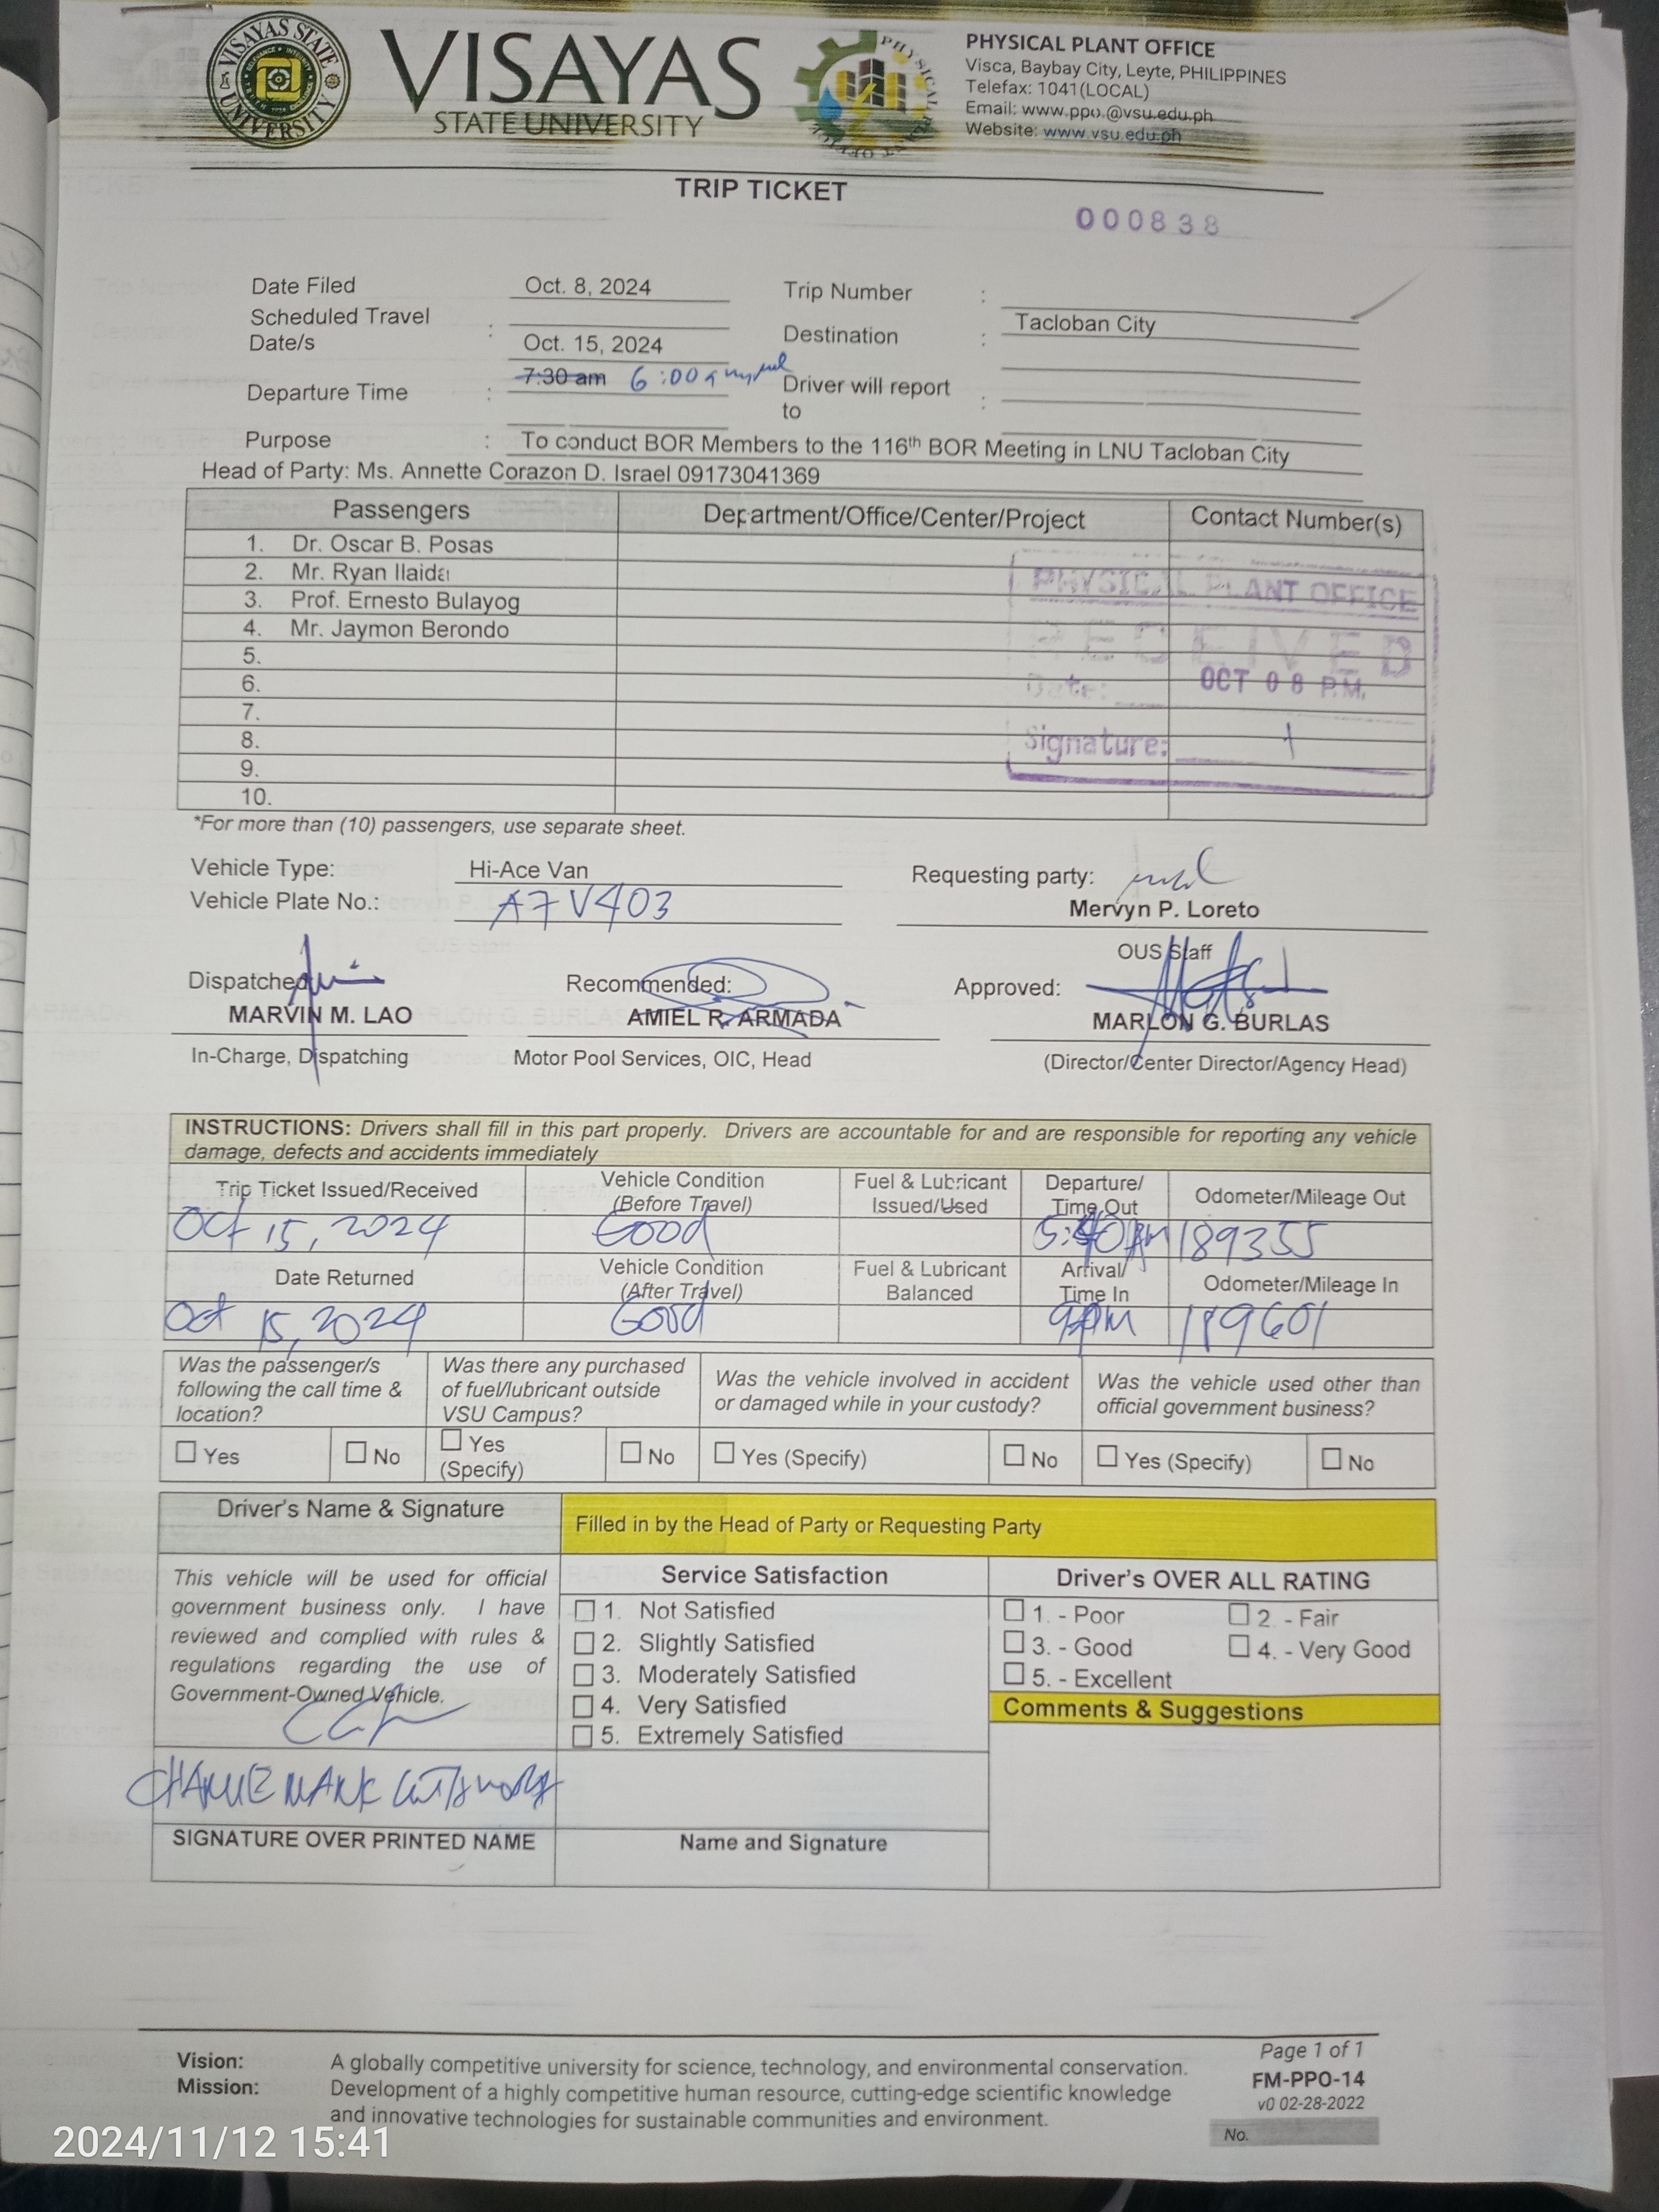 VISAYAS STATE UNIVERSITY
VISAYAS
STATE UNIVERSITY
PHYSICAL PLANT OFFICE
PHYSICAL PLANT OFFICE
Visca, Baybay City, Leyte, PHILIPPINES
Telefax: 1041(LOCAL)
Email: www.ppo.@vsu.edu.ph
Website: www.vsu.edu.ph
TRIP TICKET
000838
Date Filed Oct. 8, 2024 Trip Number :
Scheduled Travel Date/s : Oct. 15, 2024 Destination : Tacloban City
Departure Time : 7:30 am 6:00 Driver will report to :
Purpose : To conduct BOR Members to the 116th BOR Meeting in LNU Tacloban City
Head of Party: Ms. Annette Corazon D. Israel 09173041369
Passengers Department/Office/Center/Project Contact Number(s)
1. Dr. Oscar B. Posas
2. Mr. Ryan Ilaida
3. Prof. Ernesto Bulayog
4. Mr. Jaymon Berondo
5.
6.
7.
8.
9.
10.
PHYSICAL PLANT OFFICE
RECEIVED
Date: OCT 08 P.M.
Signature:
*For more than (10) passengers, use separate sheet.
Vehicle Type: Hi-Ace Van
Vehicle Plate No.: A7V403
Requesting party:
Mervyn P. Loreto
OUS Staff
Dispatched
MARVIN M. LAO
In-Charge, Dispatching
Recommended:
AMIEL R. ARMADA
Motor Pool Services, OIC, Head
Approved:
MARLON G. BURLAS
(Director/Center Director/Agency Head)
INSTRUCTIONS: Drivers shall fill in this part properly. Drivers are accountable for and are responsible for reporting any vehicle
damage, defects and accidents immediately
Trip Ticket Issued/Received Vehicle Condition (Before Travel) Fuel & Lubricant Issued/Used Departure/ Time Out Odometer/Mileage Out
Oct 15, 2024 Good 5:40AM 189355
Date Returned Vehicle Condition (After Travel) Fuel & Lubricant Balanced Arrival/ Time In Odometer/Mileage In
Oct 15, 2024 Good 9PM 189601
Was the passenger/s following the call time & location?
Was there any purchased of fuel/lubricant outside VSU Campus?
Was the vehicle involved in accident or damaged while in your custody?
Was the vehicle used other than official government business?
Yes No Yes (Specify) No Yes (Specify) No Yes (Specify) No
Driver's Name & Signature
Filled in by the Head of Party or Requesting Party
This vehicle will be used for official
government business only. I have
reviewed and complied with rules &
regulations regarding the use of
Government-Owned Vehicle.
SIGNATURE OVER PRINTED NAME
Service Satisfaction
1. Not Satisfied
2. Slightly Satisfied
3. Moderately Satisfied
4. Very Satisfied
5. Extremely Satisfied
Name and Signature
Driver's OVER ALL RATING
1. - Poor 2. - Fair
3. - Good 4. - Very Good
5. - Excellent
Comments & Suggestions
Vision: A globally competitive university for science, technology, and environmental conservation.
Mission: Development of a highly competitive human resource, cutting-edge scientific knowledge
and innovative technologies for sustainable communities and environment.
Page 1 of 1
FM-PPO-14
v0 02-28-2022
No.
2024/11/12 15:41